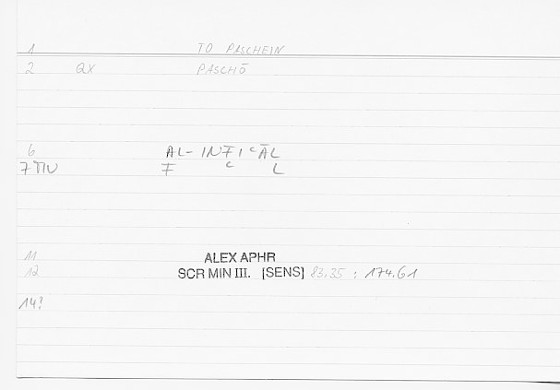 1 TO PASCHEIN
2 QX PASCHŌ
6 AL-INFICĀL
7 F C L
11 ALEX APHR
12 SCR MIN III. [SENS] 83.35 ; 174.61
14?